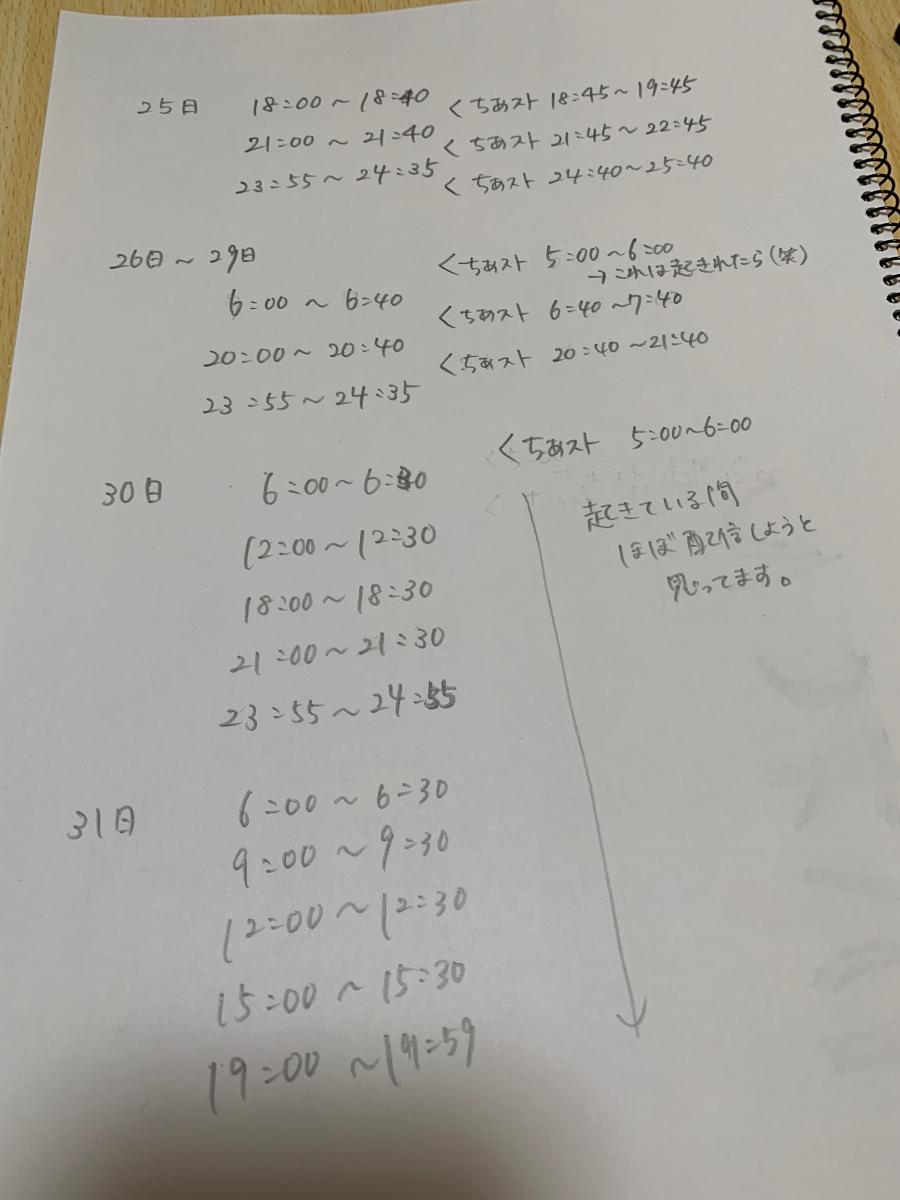 25日 18:00～18:40 <ちあスト 18:45～19:45
21:00～21:40 <ちあスト 21:45～22:45
23:55～24:35 <ちあスト 24:40～25:40
26日～29日 <ちあスト 5:00～6:00
→これは起きれたら(笑)
6:00～6:40 <ちあスト 6:40～7:40
20:00～20:40 <ちあスト 20:40～21:40
23:55～24:35
<ちあスト 5:00～6:00
30日 6:00～6:30
12:00～12:30
18:00～18:30
21:00～21:30
23:55～24:55
起きている間
ほぼ配信しようと
思ってます。
31日 6:00～6:30
9:00～9:30
12:00～12:30
15:00～15:30
19:00～19:59